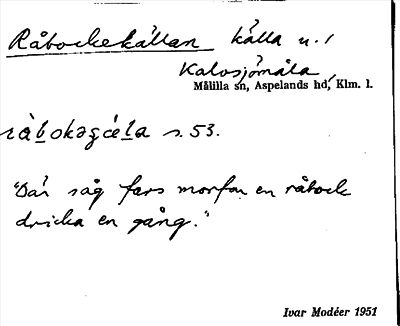 Råbockekällan källa n. 1
Kalvsjömåla,
Målilla sn, Aspelands hd, Klm. l.
s. 53.
"Där såg fars morfar en råbock
dricka en gång."
Ivar Modéer 1951